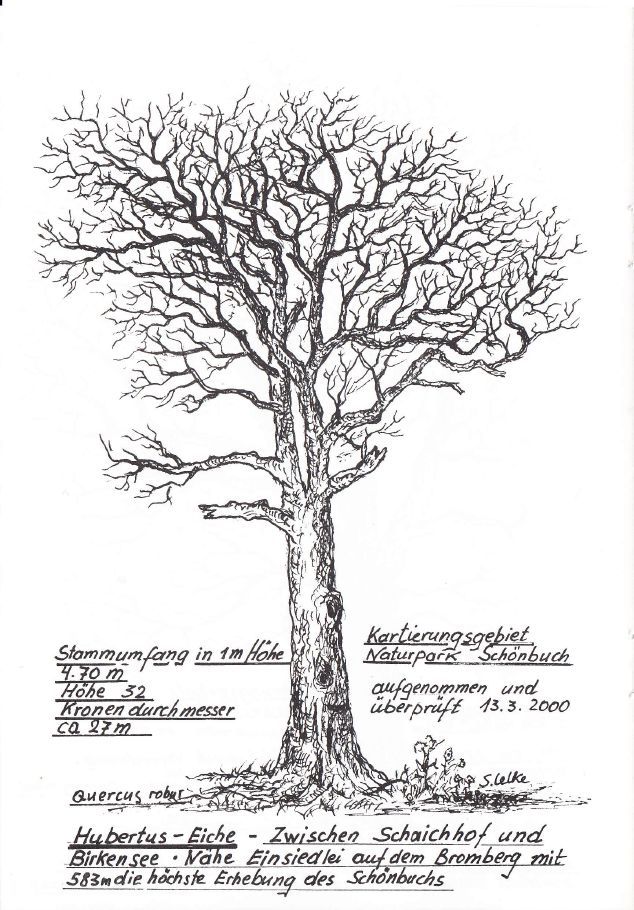 Stammumfang in 1m Höhe
4.70 m
Höhe 32
Kronendurchmesser
ca 27m
Kartierungsgebiet
Naturpark Schönbuch
aufgenommen und
überprüft 13.3.2000
Quercus robur
S. Lelke
Hubertus-Eiche - Zwischen Schaichhof und
Birkensee · Nähe Einsiedlei auf dem Bromberg mit
583m die höchste Erhebung des Schönbuchs